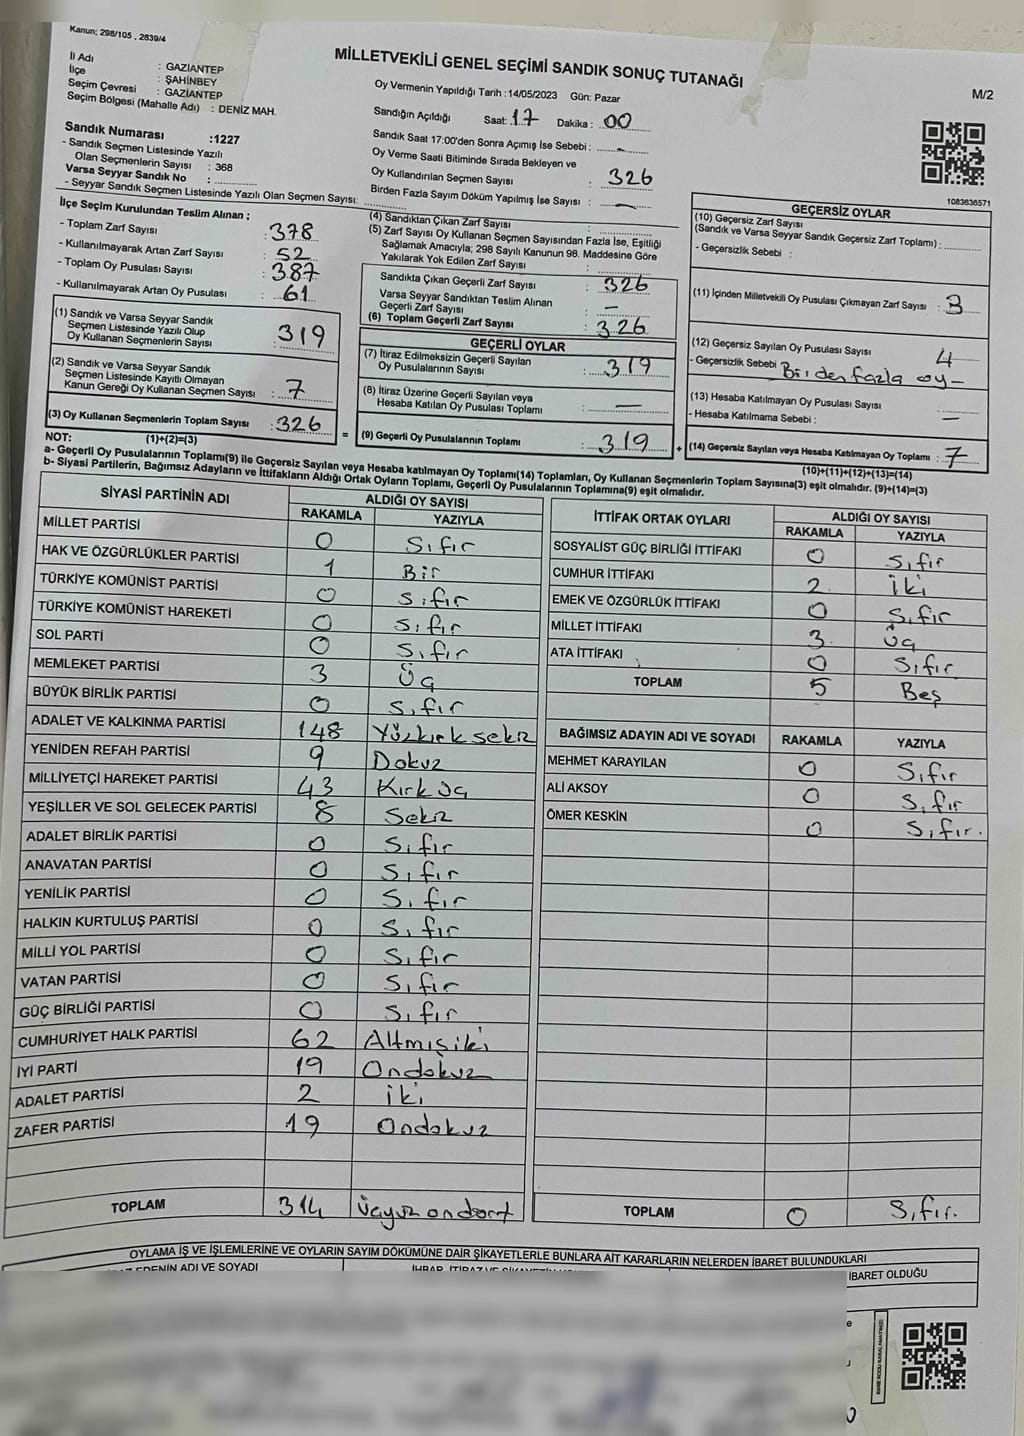 Kanun; 298/105 , 2839/4
MİLLETVEKİLİ GENEL SEÇİMİ SANDIK SONUÇ TUTANAĞI
M/2
İl Adı : GAZİANTEP
İlçe : ŞAHİNBEY
Seçim Çevresi : GAZİANTEP
Seçim Bölgesi (Mahalle Adı) : DENİZ MAH.
Sandık Numarası :1227
- Sandık Seçmen Listesinde Yazılı
Olan Seçmenlerin Sayısı : 368
Varsa Seyyar Sandık No :
- Seyyar Sandık Seçmen Listesinde Yazılı Olan Seçmen Sayısı:
Oy Vermenin Yapıldığı Tarih :14/05/2023 Gün: Pazar
Sandığın Açıldığı Saat: 17 Dakika : 00
Sandık Saat 17:00'den Sonra Açımış İse Sebebi : -
Oy Verme Saati Bitiminde Sırada Bekleyen ve
Oy Kullandırılan Seçmen Sayısı : 326
Birden Fazla Sayım Döküm Yapılmış İse Sayısı : -
1083636571
İlçe Seçim Kurulundan Teslim Alınan ;
- Toplam Zarf Sayısı : 378
- Kullanılmayarak Artan Zarf Sayısı : 52
- Toplam Oy Pusulası Sayısı : 387
- Kullanılmayarak Artan Oy Pusulası : 61
(1) Sandık ve Varsa Seyyar Sandık
Seçmen Listesinde Yazılı Olup
Oy Kullanan Seçmenlerin Sayısı : 319
(2) Sandık ve Varsa Seyyar Sandık
Seçmen Listesinde Kayıtlı Olmayan
Kanun Gereği Oy Kullanan Seçmen Sayısı : 7
(3) Oy Kullanan Seçmenlerin Toplam Sayısı : 326
(1)+(2)=(3)
(4) Sandıktan Çıkan Zarf Sayısı :
(5) Zarf Sayısı Oy Kullanan Seçmen Sayısından Fazla İse, Eşitliği
Sağlamak Amacıyla; 298 Sayılı Kanunun 98. Maddesine Göre
Yakılarak Yok Edilen Zarf Sayısı :
Sandıkta Çıkan Geçerli Zarf Sayısı : 326
Varsa Seyyar Sandıktan Teslim Alınan
Geçerli Zarf Sayısı : -
(6) Toplam Geçerli Zarf Sayısı : 326
GEÇERLİ OYLAR
(7) İtiraz Edilmeksizin Geçerli Sayılan
Oy Pusulalarının Sayısı : 319
(8) İtiraz Üzerine Geçerli Sayılan veya
Hesaba Katılan Oy Pusulası Toplamı : -
= (9) Geçerli Oy Pusulalarının Toplamı : 319
GEÇERSİZ OYLAR
(10) Geçersiz Zarf Sayısı
(Sandık ve Varsa Seyyar Sandık Geçersiz Zarf Toplamı) :
- Geçersizlik Sebebi :
(11) İçinden Milletvekili Oy Pusulası Çıkmayan Zarf Sayısı : 3
(12) Geçersiz Sayılan Oy Pusulası Sayısı 4
- Geçersizlik Sebebi Birden fazla oy-
(13) Hesaba Katılmayan Oy Pusulası Sayısı
- Hesaba Katılmama Sebebi : -
+ (14) Geçersiz Sayılan veya Hesaba Katılmayan Oy Toplamı : 7
(10)+(11)+(12)+(13)=(14)
NOT:
a- Geçerli Oy Pusulalarının Toplamı(9) ile Geçersiz Sayılan veya Hesaba katılmayan Oy Toplamı(14) Toplamları, Oy Kullanan Seçmenlerin Toplam Sayısına(3) eşit olmalıdır. (9)+(14)=(3)
b- Siyasi Partilerin, Bağımsız Adayların ve İttifakların Aldığı Ortak Oyların Toplamı, Geçerli Oy Pusulalarının Toplamına(9) eşit olmalıdır.
SİYASİ PARTİNİN ADI ALDIĞI OY SAYISI
RAKAMLA YAZIYLA
MİLLET PARTİSİ 0 Sıfır
HAK VE ÖZGÜRLÜKLER PARTİSİ 1 Bir
TÜRKİYE KOMÜNİST PARTİSİ 0 Sıfır
TÜRKİYE KOMÜNİST HAREKETİ 0 Sıfır
SOL PARTİ 0 Sıfır
MEMLEKET PARTİSİ 3 Üç
BÜYÜK BİRLİK PARTİSİ 0 Sıfır
ADALET VE KALKINMA PARTİSİ 148 Yüzkırksekiz
YENİDEN REFAH PARTİSİ 9 Dokuz
MİLLİYETÇİ HAREKET PARTİSİ 43 Kırküç
YEŞİLLER VE SOL GELECEK PARTİSİ 8 Sekiz
ADALET BİRLİK PARTİSİ 0 Sıfır
ANAVATAN PARTİSİ 0 Sıfır
YENİLİK PARTİSİ 0 Sıfır
HALKIN KURTULUŞ PARTİSİ 0 Sıfır
MİLLİ YOL PARTİSİ 0 Sıfır
VATAN PARTİSİ 0 Sıfır
GÜÇ BİRLİĞİ PARTİSİ 0 Sıfır
CUMHURİYET HALK PARTİSİ 62 Altmışiki
İYİ PARTİ 19 Ondokuz
ADALET PARTİSİ 2 iki
ZAFER PARTİSİ 19 Ondokuz
TOPLAM 314 Üçyüzondört
İTTİFAK ORTAK OYLARI ALDIĞI OY SAYISI
RAKAMLA YAZIYLA
SOSYALİST GÜÇ BİRLİĞİ İTTİFAKI 0 Sıfır
CUMHUR İTTİFAKI 2 İki
EMEK VE ÖZGÜRLÜK İTTİFAKI 0 Sıfır
MİLLET İTTİFAKI 3 Üç
ATA İTTİFAKI 0 Sıfır
TOPLAM 5 Beş
BAĞIMSIZ ADAYIN ADI VE SOYADI RAKAMLA YAZIYLA
MEHMET KARAYILAN 0 Sıfır
ALİ AKSOY 0 Sıfır
ÖMER KESKİN 0 Sıfır.
TOPLAM 0 Sıfır.
OYLAMA İŞ VE İŞLEMLERİNE VE OYLARIN SAYIM DÖKÜMÜNE DAİR ŞİKAYETLERLE BUNLARA AİT KARARLARIN NELERDEN İBARET BULUNDUKLARI
ADI VE SOYADI
İBARET OLDUĞU